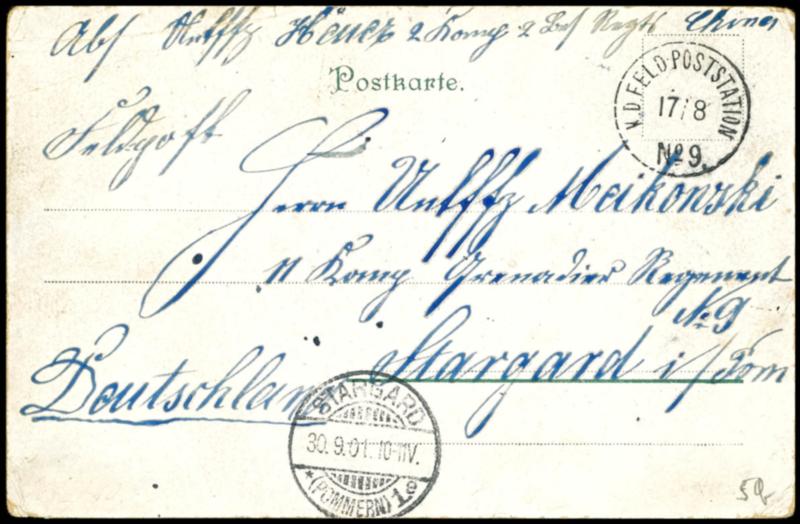 Abs Untffz Höner 2 Komp 2 Bes Regts China
Postkarte.
K.D.FELD-POSTSTATION
17/8
No 9.
Feldpost
Herrn Untffz Meikowski
11 Komp Grenadier Regement
No 9
Stargard i/Pom
Deutschland
STARGARD
30.9.01.10-11V.
*(POMMERN)1e